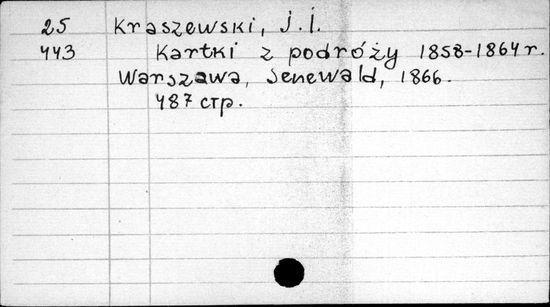 25 Kraszewski, J. I.
443 Kartki z podróży 1858-1864 r.
Warszawa, Senewald, 1866.
487 стр.